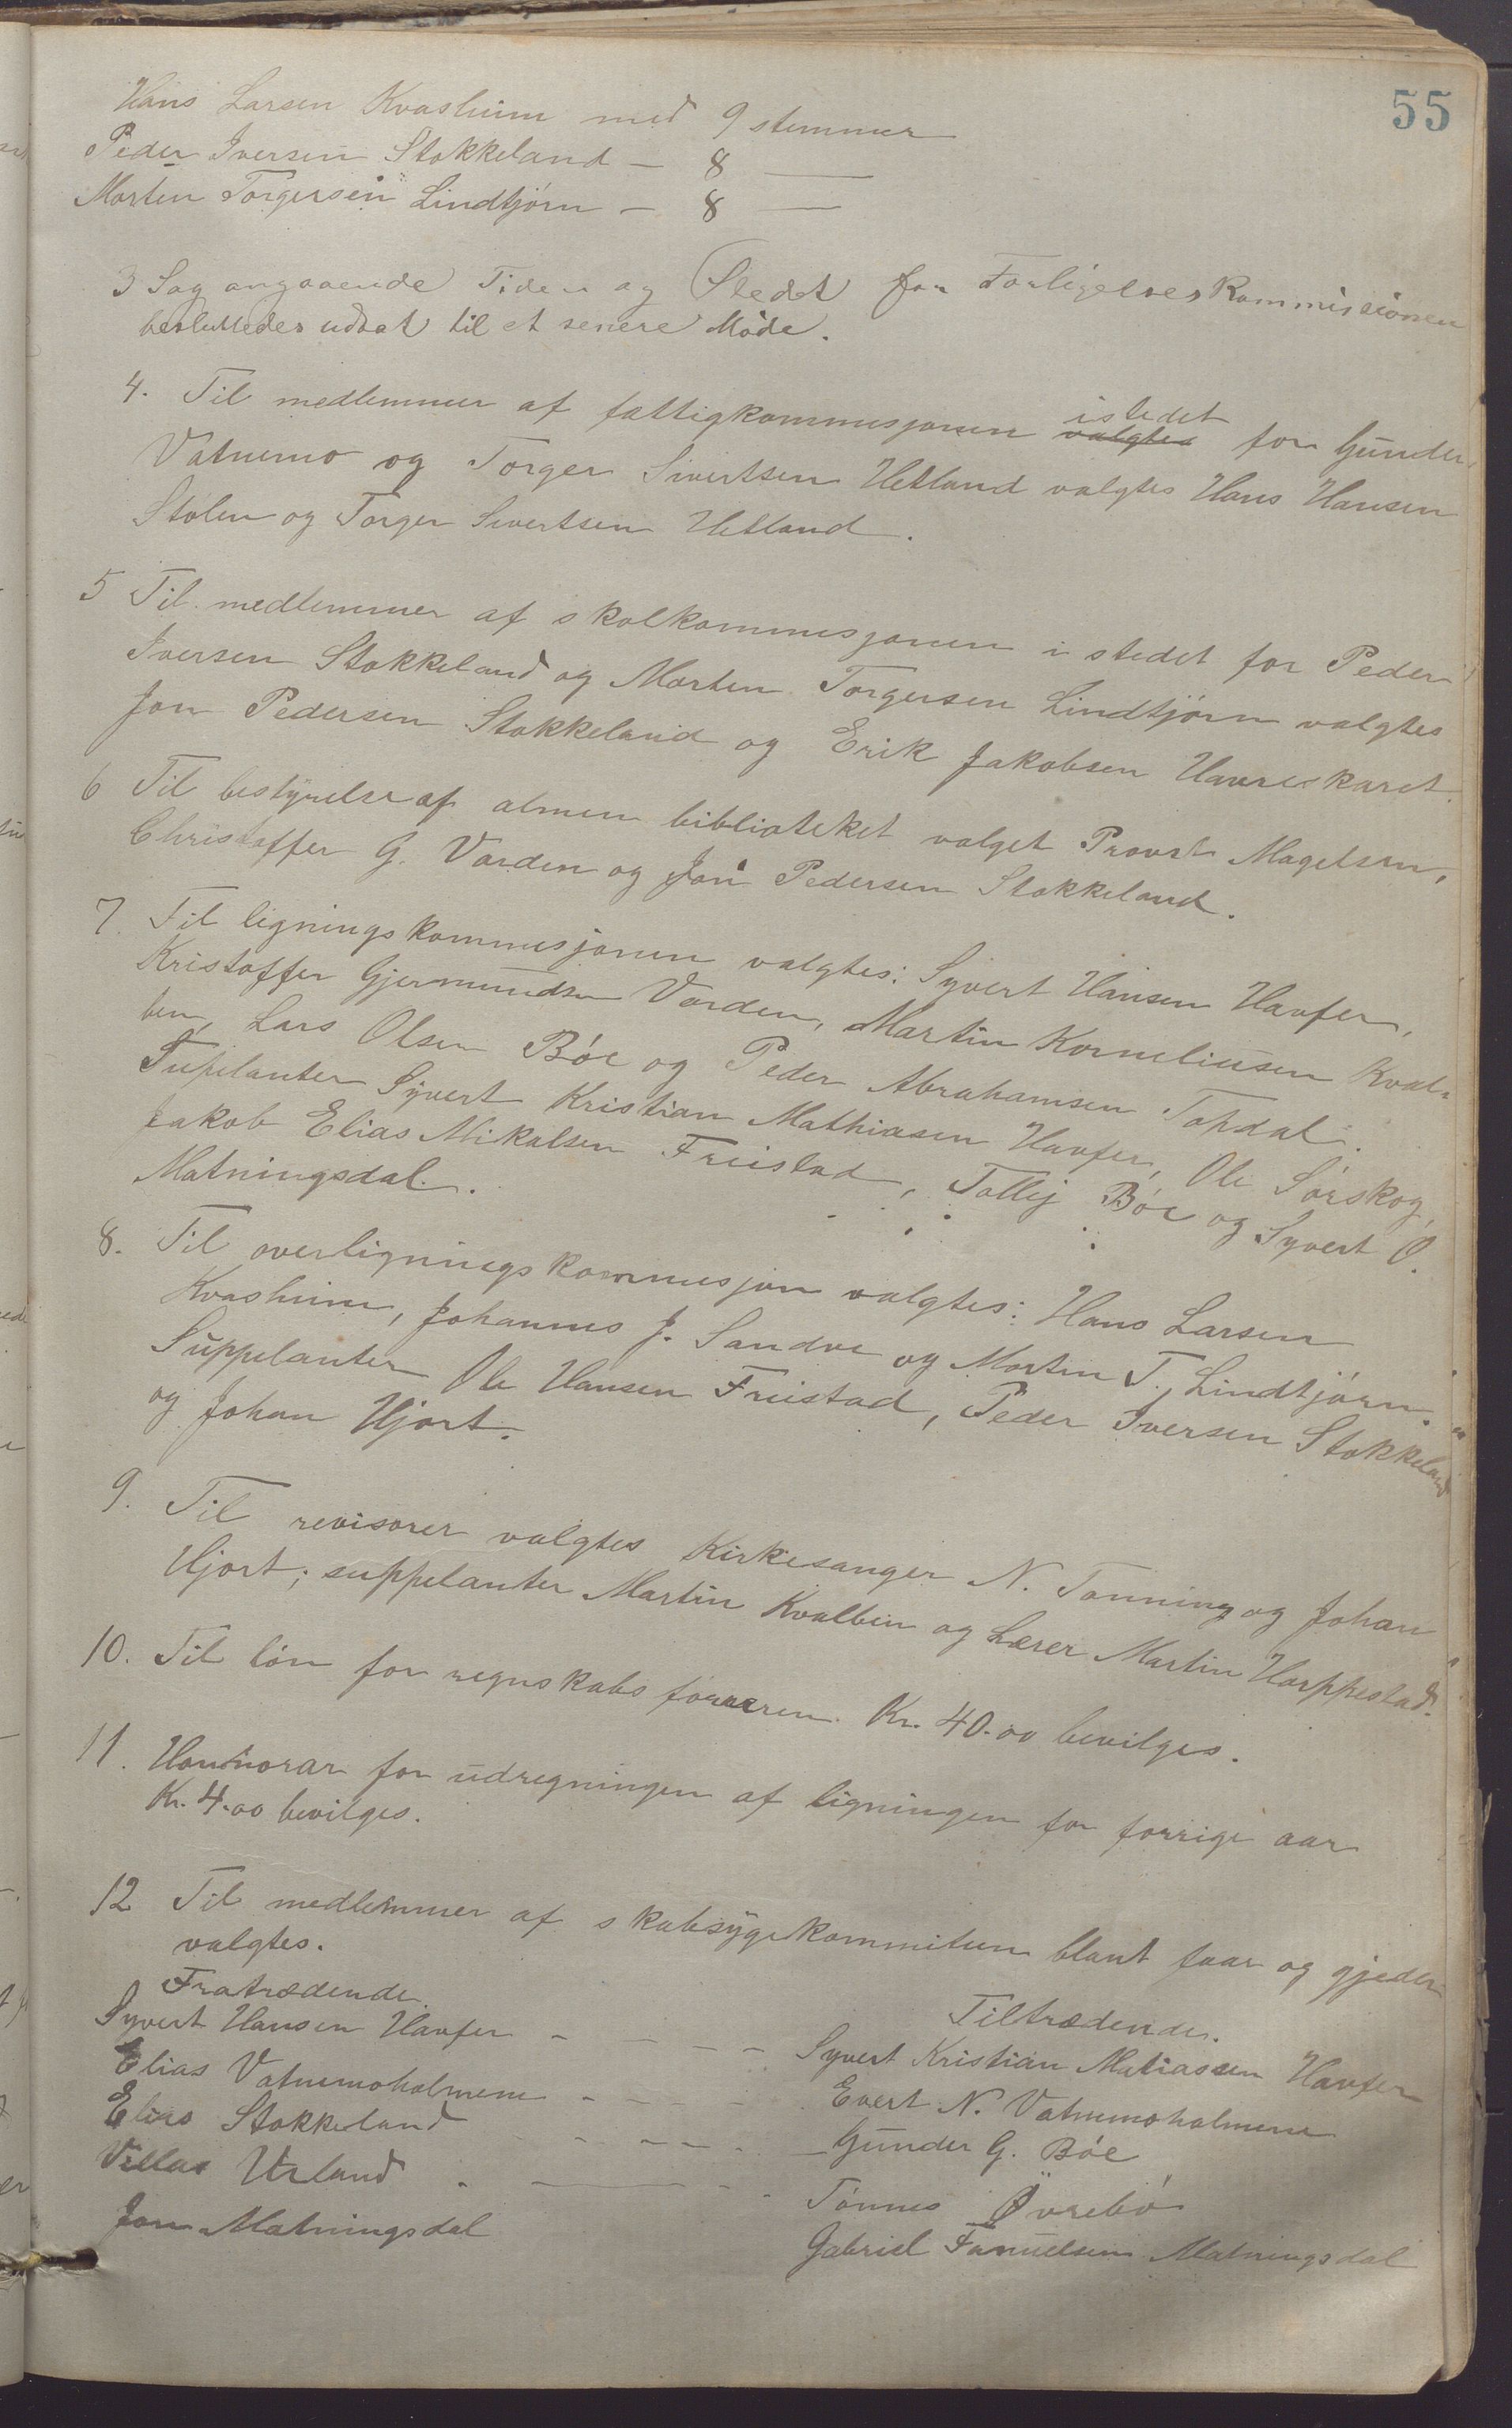 55
Hans Larsen Kvasheim med 9 stemmer
Peder Iversen Stokkeland — 8 —
Morten Torgersen Lindtjörn — 8 —
3 Sag angaaende Tiden og Stedet for Forligelseskommissionen
besluttedes udsat til et senere Möde.
4. Til medlemmer af fattigkommisjonen valgtes istedet for Gunder
Vatnemo og Torger Sivertsen Hetland valgtes Hans Hansen
Stölen og Torger Sivertsen Hetland.
5 Til medlemmer af skolkommisjonen i stedet for Peder
Iversen Stokkeland og Morten Torgersen Lindtjörn valgtes
Jon Pedersen Stokkeland og Erik Jakobsen
6 Til bestyrelse af almen biblioteket valget Provst Magelsen,
Christoffer G. Varden og Jon Pedersen Stokkeland.
7. Til ligningskommisjonen valgtes: Syvert Hansen Havfer,
Kristoffer Gjermundsen Varden, Martin Korneliusen Kval-
ben, Lars Olsen Böe og Peder Abrahamsen Topdal.
Suplanter Syvert Kristian Mathiasen Havfer, Ole Sörskog,
Jakob Elias Mikalsen Freistad, Tollej Böe og Syvert O.
Matningsdal.
8. Til overligningskommisjon valgtes: Hans Larsen
Kvasheim, Johannes J. Sandve og Morten T. Lindtjörn.
Suppelanter Ole Hansen Freistad, Peder Iversen Stokkeland
og Johan Hjort.
9. Til revisorer valgtes Kirkesanger N. Tonning og Johan
Hjort; suppelanter Martin Kvalben og Lærer Martin Horppestad.
10. Til lön for regnskabsföreren Kr. 40.00 bevilges.
11. Honnorar for udregningen af ligningen for forrige aar
Kr. 4.00 bevilges.
12 Til medlemmer af skabsygekommiteen blant faar og gjeder
valgtes.
Fratrædende Tiltrædende.
Syvert Hansen Havfer - — - - Syvert Kristian Matiassen Havfer
Elias Vatnemoholmene - - - - Evert N. Vatnemoholmene
Elias Stokkeland - - - - Gunder G. Böe
Villas Urland - — - - Tönnes Övrebö
Jon Matningsdal Gabriel Fanuelsen Matningsdal